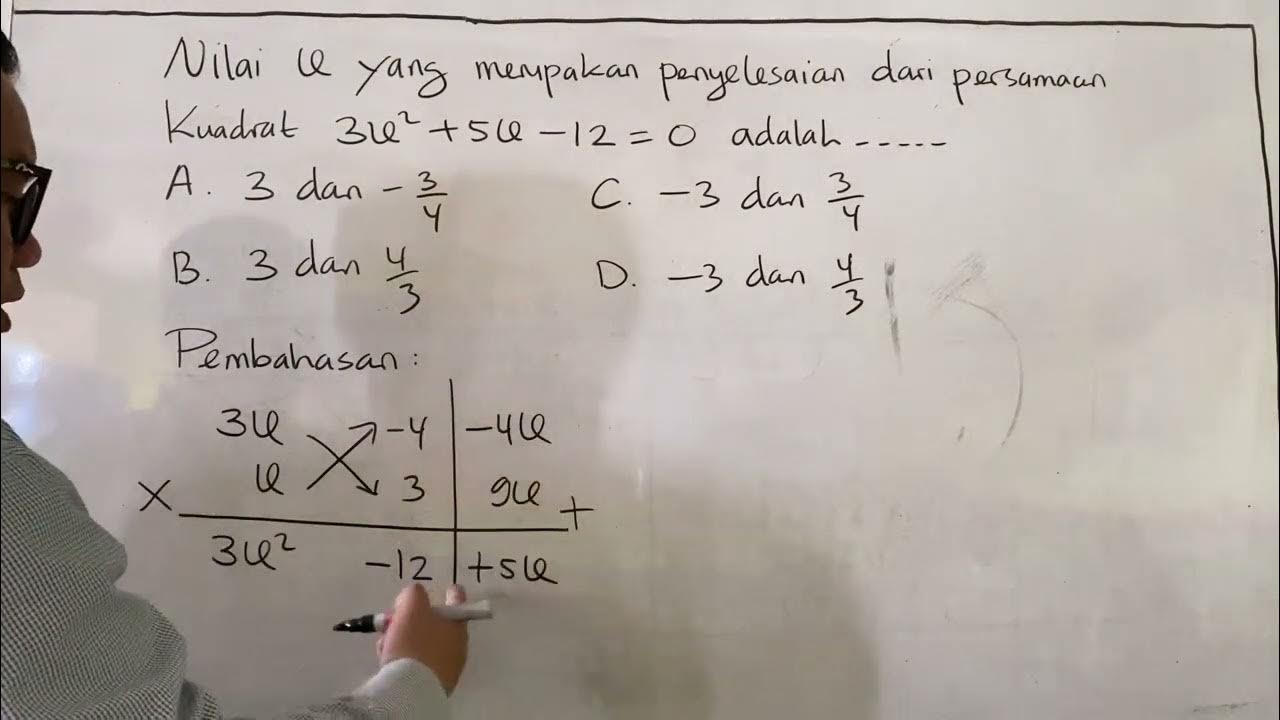 Nilai x yang merupakan penyelesaian dari persamaan
Kuadrat 3x² + 5x - 12 = 0 adalah -----
A. 3 dan - 3/4 C. -3 dan 3/4
B. 3 dan 4/3 D. -3 dan 4/3
Pembahasan :
3x -4 | -4x
× x 3 | 9x +
3x² -12 | +5x